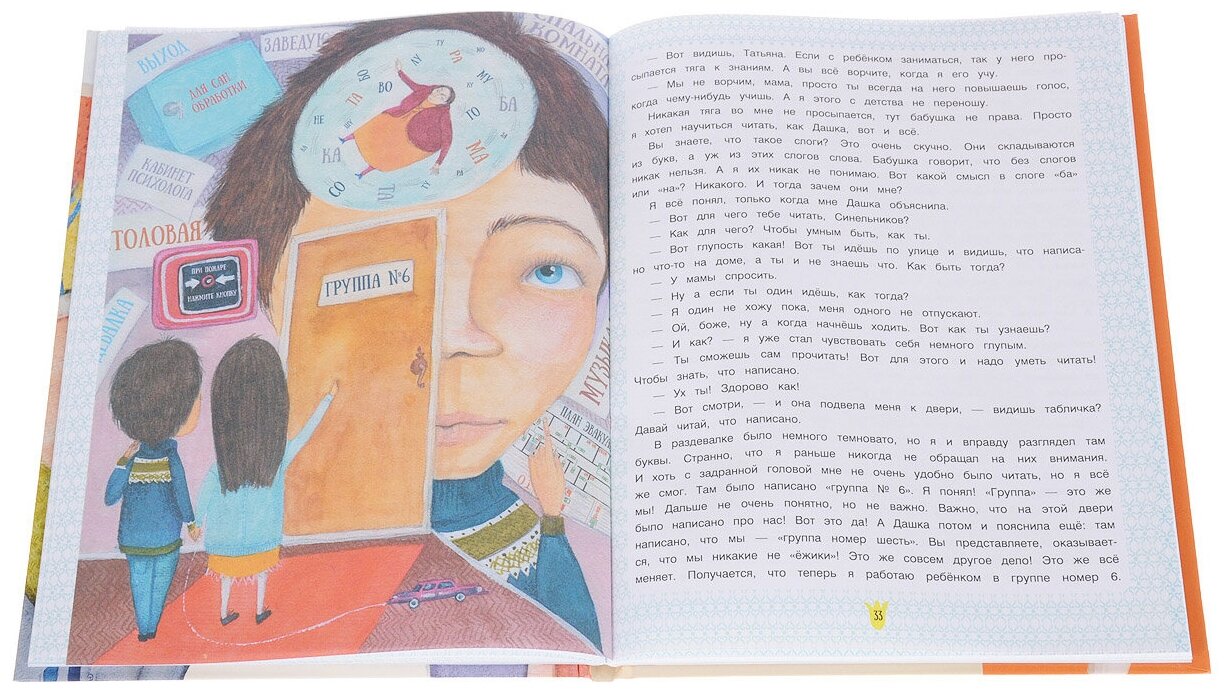 ВЫХОД
ЗАВЕДУЮ
СПАЛЬН
КОМНАТА
ДЛЯ САН
ОБРАБОТКИ
КАБИНЕТ
ПСИХОЛОГА
ТОЛОВАЯ
ПРИ ПОЖАРЕ
НАЖМИТЕ КНОПКУ
ГРУППА №6
ТУ
МО
РА
ЛУ
МУ
ВО
ТА
НЕ
БА
ТО
КА
МА
СО
ТА
ТУ
РА
МУЗЫК
ПЛАН ЭВАКУА
— Вот видишь, Татьяна. Если с ребёнком заниматься, так у него про-
сыпается тяга к знаниям. А вы всё ворчите, когда я его учу.
— Мы не ворчим, мама, просто ты всегда на него повышаешь голос,
когда чему-нибудь учишь. А я этого с детства не переношу.
Никакая тяга во мне не просыпается, тут бабушка не права. Просто
я хотел научиться читать, как Дашка, вот и всё.
Вы знаете, что такое слоги? Это очень скучно. Они складываются
из букв, а уж из этих слогов слова. Бабушка говорит, что без слогов
никак нельзя. А я их никак не понимаю. Вот какой смысл в слоге «ба»
или «на»? Никакого. И тогда зачем они мне?
Я всё понял, только когда мне Дашка объяснила.
— Вот для чего тебе читать, Синельников?
— Как для чего? Чтобы умным быть, как ты.
— Вот глупость какая! Вот ты идёшь по улице и видишь, что написа-
но что-то на доме, а ты и не знаешь что. Как быть тогда?
— У мамы спросить.
— Ну а если ты один идёшь, как тогда?
— Я один не хожу пока, меня одного не отпускают.
— Ой, боже, ну а когда начнёшь ходить. Вот как ты узнаешь?
— И как? — я уже стал чувствовать себя немного глупым.
— Ты сможешь сам прочитать! Вот для этого и надо уметь читать!
Чтобы знать, что написано.
— Ух ты! Здорово как!
— Вот смотри, — и она подвела меня к двери, — видишь табличка?
Давай читай, что написано.
В раздевалке было немного темновато, но я и вправду разглядел там
буквы. Странно, что я раньше никогда не обращал на них внимания.
И хоть с задранной головой мне не очень удобно было читать, но я всё
же смог. Там было написано «группа № 6». Я понял! «Группа» — это же
мы! Дальше не очень понятно, но не важно. Важно, что на этой двери
было написано про нас! Вот это да! А Дашка потом и пояснила ещё: там
написано, что мы — «группа номер шесть». Вы представляете, оказывает-
ся, что мы никакие не «ёжики»! Это же совсем другое дело! Это же всё
меняет. Получается, что теперь я работаю ребёнком в группе номер 6.
33